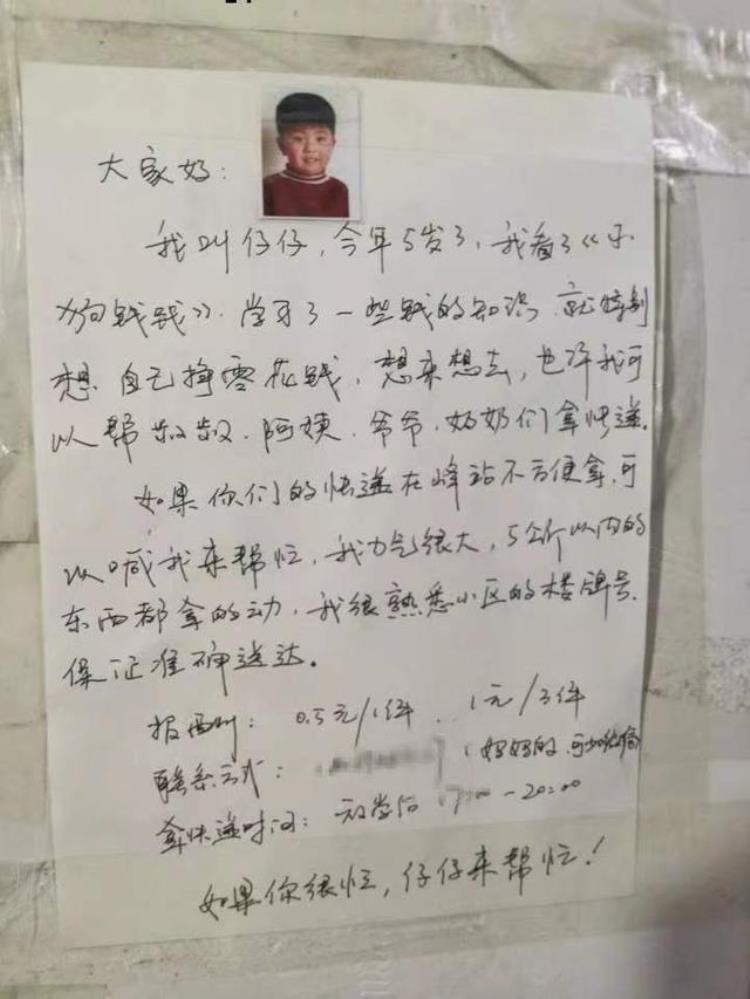 大家好：
我叫仔仔，今年5岁了，我看了《小
狗钱钱》.学习了一些钱的知识.就特别
想.自己挣零花钱，想来想去，也许我可
以帮叔叔.阿姨.爷爷.奶奶们拿快递.
如果你们的快递在峰站不方便拿.可
以喊我来帮忙，我力气很大，5公斤以内的
东西都拿的动，我很熟悉小区的楼牌号.
保证准确送达。
报酬：0.5元/1件.1元/3件
联系方式：（妈妈的.可加微信
拿快递时间：放学后17:00-20:00
如果你很忙，仔仔来帮忙！